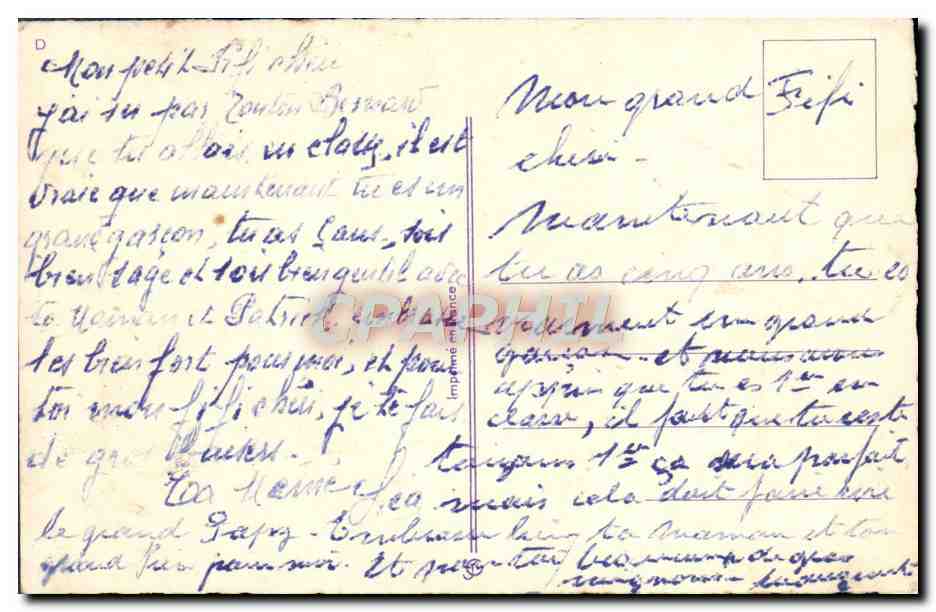 D
Mon petit Fifi chéri
j'ai su par Tonton Bernard
que tu allais en classe, il est
vraie que maintenant tu es un
grand garçon, tu as 5 ans, sois
bien sage et sois bien gentil avec
ta Maman et Patrick,
les bien fort pour moi, et pour
toi mon fifi chéri, je te fais
de gros
Ta Mémé
Imprimé en France
Mon grand Fifi
chéri -
Maintenant que
tu as cinq ans, tu es
vraiment un grand
garçon. et nous avons
appris que tu es 1er en
classe, il faut que tu restes
toujours 1er ça sera parfait
mais cela doit faire rire
le grand Papy - Embrasse bien ta maman et ton
grand pour moi. Et pour toi beaucoup de gros
CPAPHIL